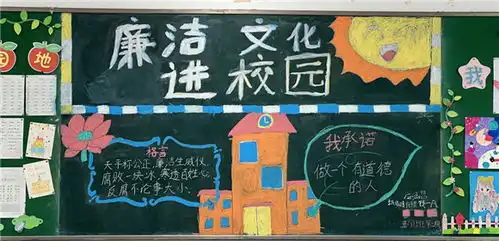 廉洁 文化
进校园
园地
我
格言
天平称公正,廉洁生威仪
腐败一块冰,寒透百姓心
反腐不论事大小。
我承诺
做一个有道德
的人